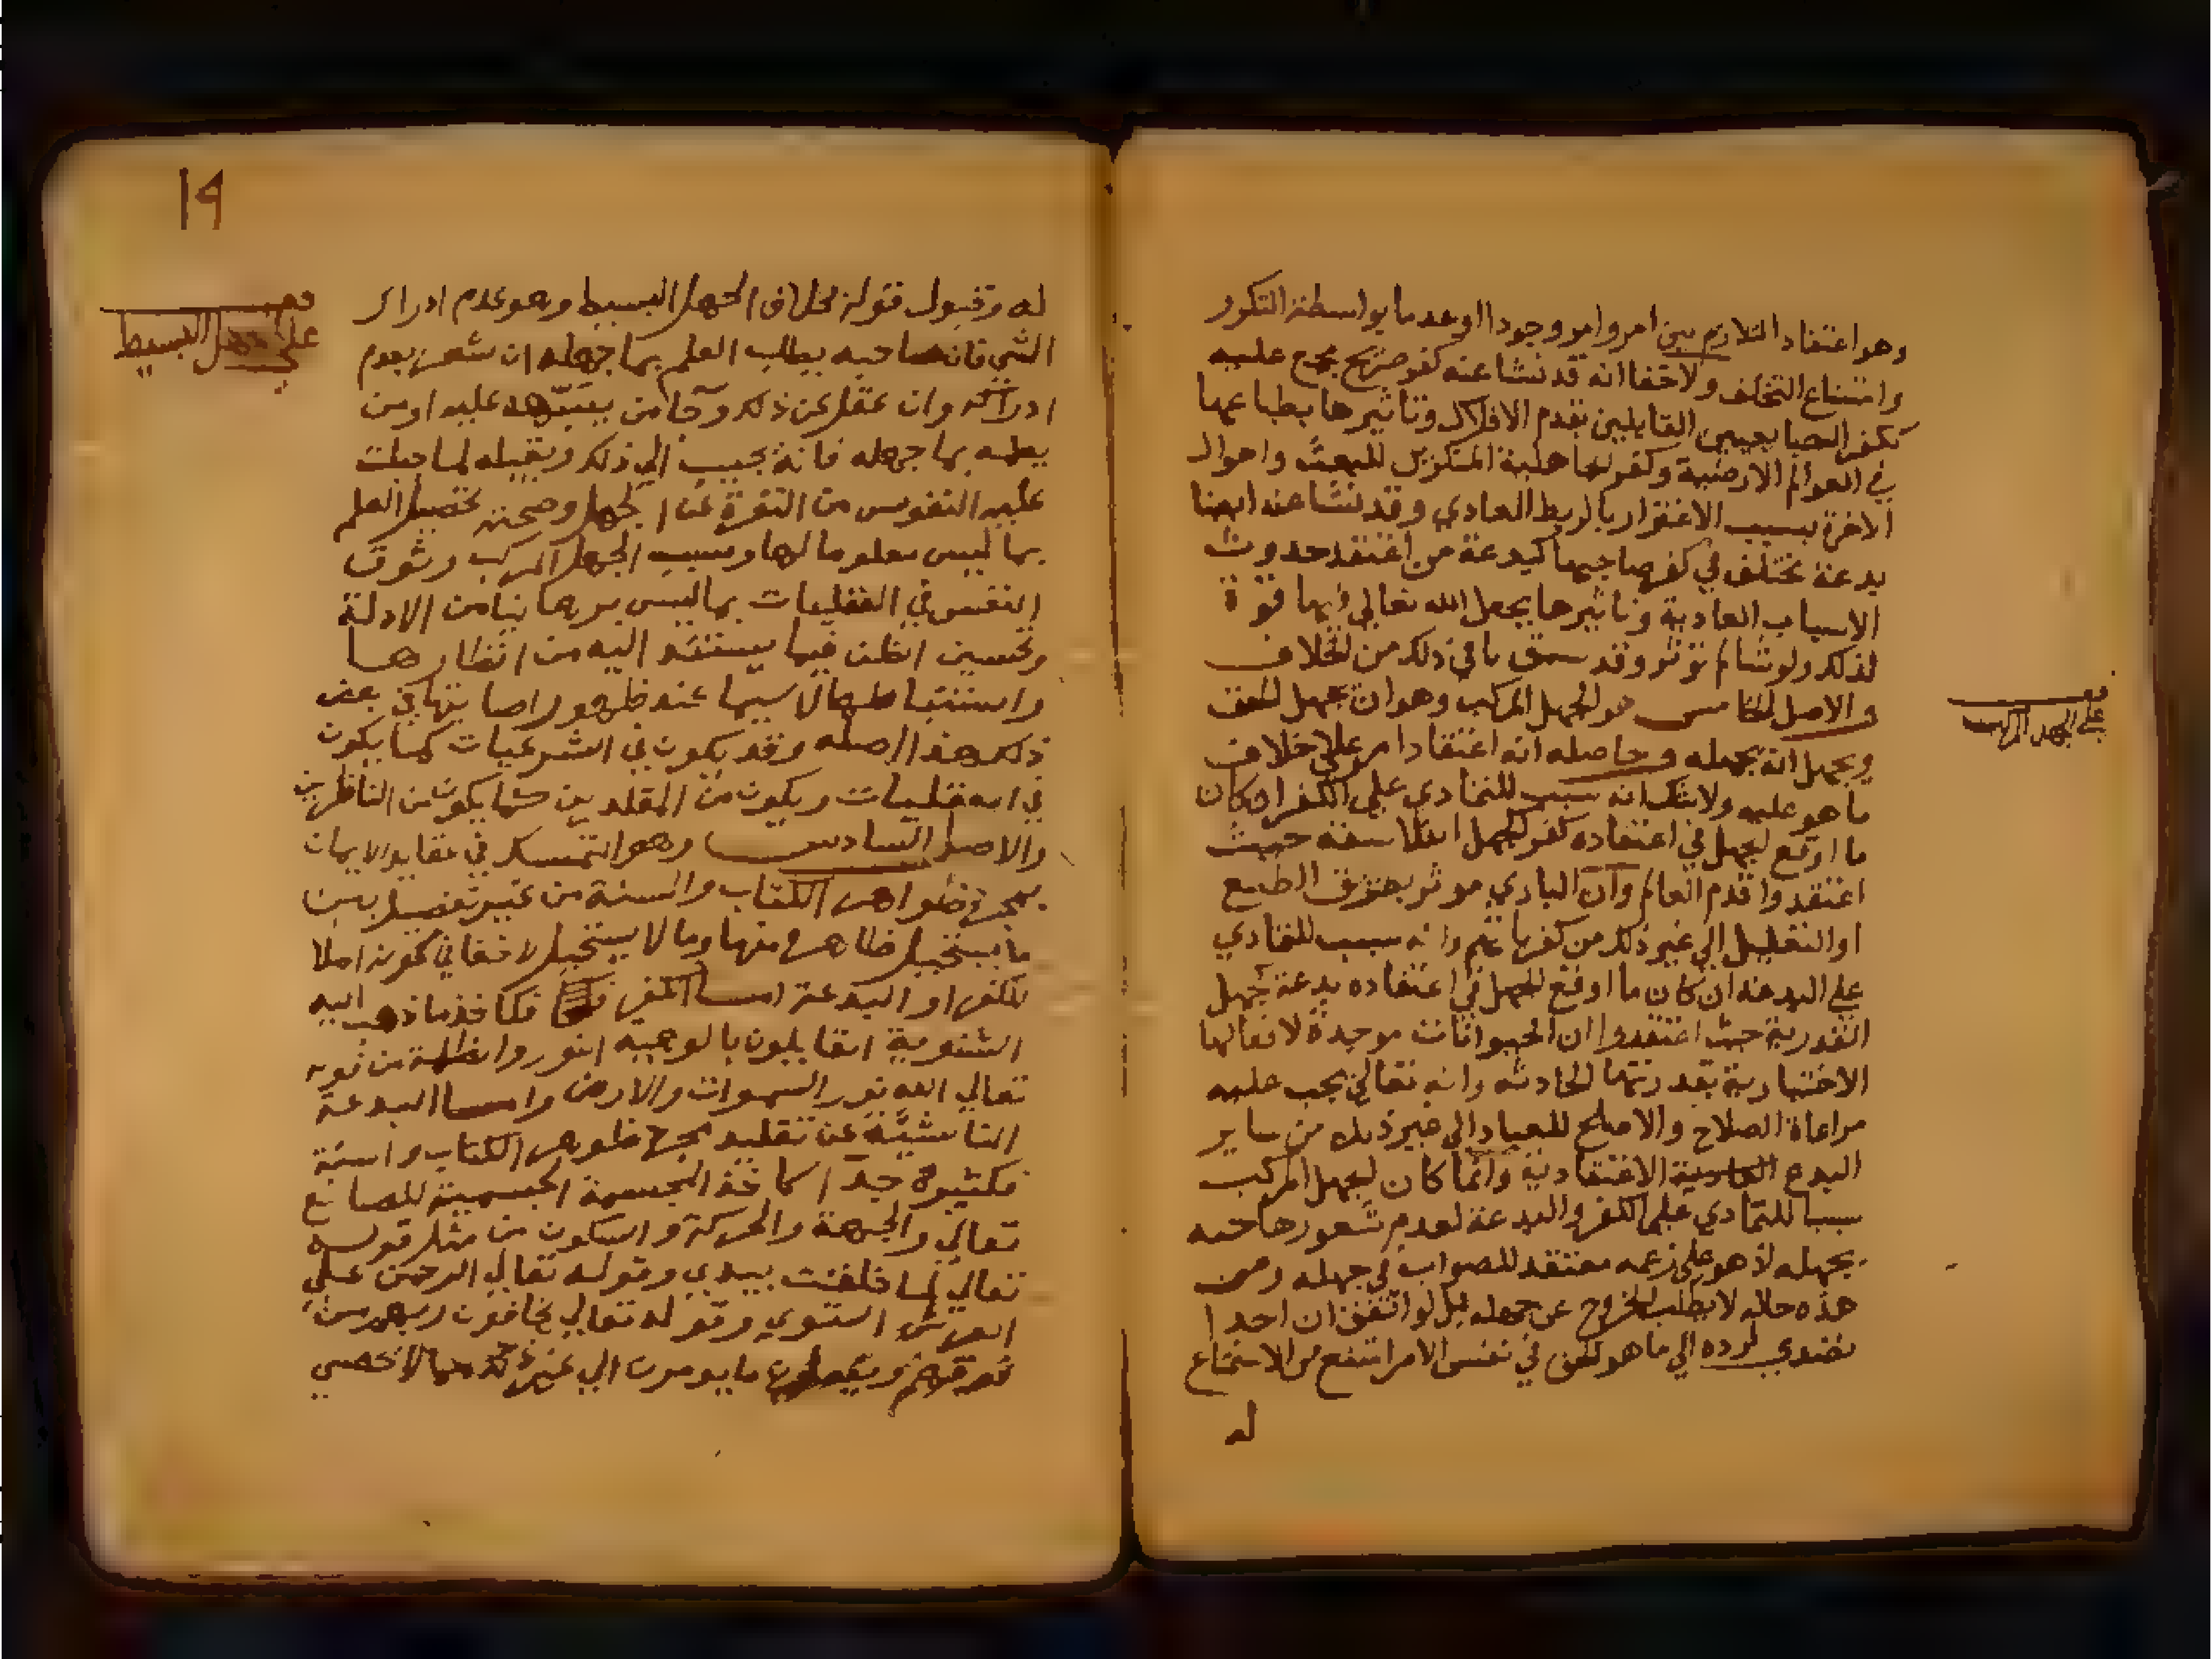 وهو اعتقاد التلازم بين امر وامر وجودا او عدما بواسطة التكرر
وامتناع التخلف ولا خفا انه قد نشا عنه كفر صريح مجمع عليه
ككفر الطبايعيين القايلين بقدم الافلاك وتاثيرها بطباعها
في العوالم الارضية وكفر الجاهلية المنكرين للبعث واحوال
الاخرة بسبب الاغترار بالربط العادي وقد نشا عنه ايضا
بدعة مختلف في كفر صاحبها كبدعة من اعتقد حدوث
الاسباب العادية وتاثيرها بجعل الله تعالى فيها قوة
لذلك ولو شا لم تؤثر وقد سبق ما في ذلك من الخلاف
والاصل الخامس هو الجهل المركب وهو ان يجهل الحق
ويجهل انه يجهله وحاصله انه اعتقاد امر على خلاف
ما هو عليه ولا شك انه سبب للتمادي على الكفر ان كان
ما اوقع الجهل في اعتقاده كفر كجهل الفلاسفة حيث
اعتقدوا قدم العالم وان الباري موثر بطريق الطبع
او التعليل الي غير ذلك من كفرياتهم وانه سبب للتمادي
علي البدعة ان كان ما اوقع الجهل في اعتقاده بدعة كجهل
القدرية حيث اعتقدوا ان الحيوانات موجدة لافعالها
الاختيارية بقدرتها الحادثة وانه تعالي يجب عليه
مراعاة الصلاح والاصلح للعباد الي غير ذلك من ساير
البدع الاعتقادية وانما كان الجهل المركب
سببا للتمادي علي الكفر والبدعة لعدم شعور صاحبه
بجهله اذ هو علي زعمه معتقد للصواب في جهله ومن
هذه حاله لا يطلب الخروج عن جهله بل لو اتفق ان احدا
تصدي لرده الي ما هو الحق في نفس الامر امتنع من الاستماع
له
فف
علي الجهل المركب
19
له وقبول قوله بخلاف الجهل البسيط وهو عدم ادراك
الشي فان صاحبه يطلب العلم بما جهله ان شعر بعدم
ادراكه وان غفل عن ذلك وجا من ينبهه عليه او من
يعلمه بما جهله فانه يجيب الي ذلك ويقبله لما جبلت
عليه النفوس من النفرة عن الجهل ومحبة تحصيل العلم
بما ليس معلوما لها وسبب الجهل المركب وثوق
النفس في العقليات بما ليس برهانيا من الادلة
وتحسين الظن فيما يستند اليه من انظارها
واستنباطها لا سيما عند ظهور اصابتها في بعض
ذلك هذا اصله وقد يكون في الشرعيات كما يكون
في العقليات ويكون من المقلدين كما يكون من الناظرين
والاصل السادس وهو التمسك في عقايد الايمان
بمجرد ظواهر الكتاب والسنة من غير تفصيل بين
ما يستحيل ظاهره منها وما لا يستحيل لا خفا في كونه اصلا
للكفر او البدعة اما الكفر فكاخذ ما ذهب اليه
الثنوية القايلون بالوهية النور والظلمة من قوله
تعالي الله نور السموات والارض واما البدعة
الناشئة عن تقليد مجرد ظواهر الكتاب والسنة
فكثيرة جدا كاخذ المجسمة الجسمية للصانع
تعالي والجهة والحركة والسكون من مثل قوله
تعالي لما خلقت بيدي وقوله تعالي الرحمن علي
العرش استوي وقوله تعالي يخافون ربهم من
فوقهم ويفعلون ما يومرون الي غير ذلك مما لا يحصي
فف
علي الجهل البسيط